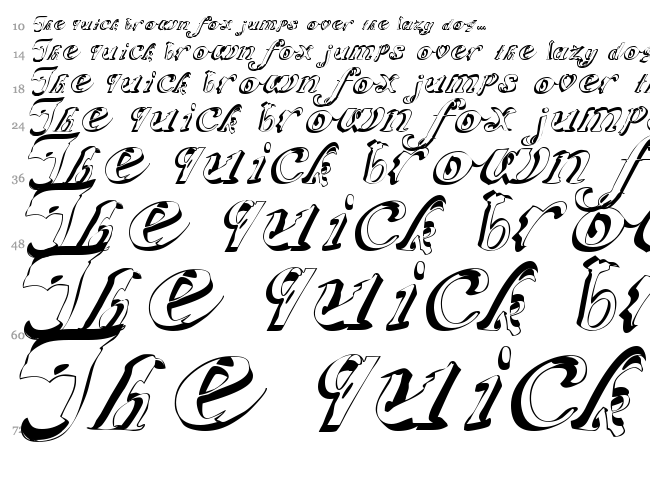 10 The quick brown fox jumps over the lazy dog...
14 The quick brown fox jumps over the lazy dog
18 The quick brown fox jumps over th
24 The quick brown fox jumps
36 The quick brown f
48 The quick bro
60 The quick br
72 The quick